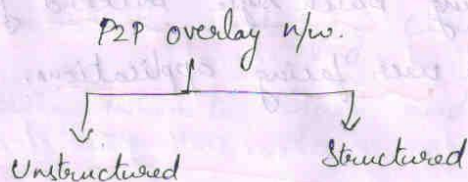 P2P overlay n/w.
Unstructured
Structured